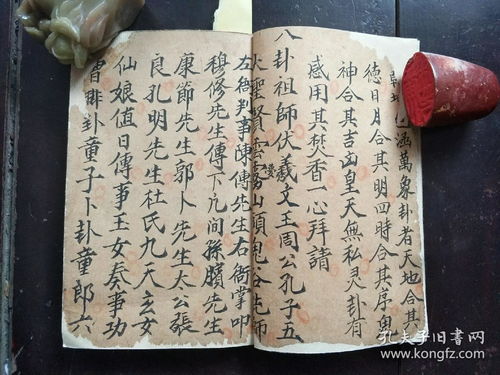 涵萬象卦者天地合其
德日月合其明四時合其序鬼
神合其吉凶皇天無私灵卦有
感用其焚香一心拜請
八卦祖師伏羲文王周公孔子五
大聖賢雲夢山頭鬼谷先師
左衙判事陳傳先生右衙掌印
穆修先生傳下凡间孫臏先生
康節先生郭卜先生太公張
良孔明先生杜氏九天玄女
仙娘值日傳事玉女奏事功
曹排卦童子卜卦童郎六
孔夫子旧书网
www.kongfz.com